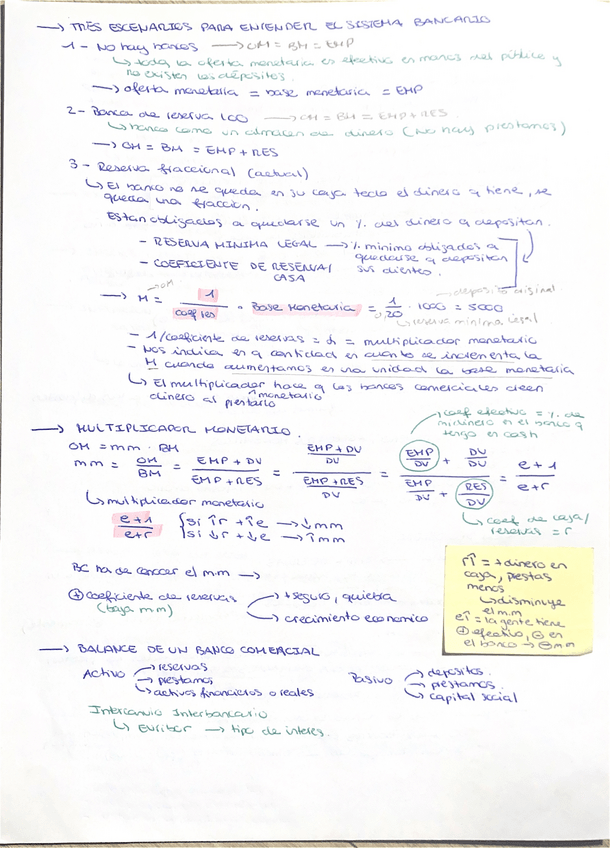 → TRES ESCENARIOS PARA ENTENDER EL SISTEMA BANCARIO
1 - No hay bancos → OM = BM = EMP
↳ toda la oferta monetaria es efectivo en manos del público y
no existen los depósitos.
→ oferta monetaria = base monetaria = EMP
2 - Banca de reserva 100 → OM = BM = EMP + RES.
↳ banco como un almacén de dinero (No hay prestamos)
→ OM = BM = EMP + RES
3 - Reserva fraccional (actual)
↳ El banco no se queda en su caja todo el dinero q tiene, se
queda una fracción.
Están obligados a quedarse un % del dinero q depositan.
- RESERVA MINIMA LEGAL → % minimo obligados a
quedarse q depositan
- COEFICIENTE DE RESERVA/
CASA
sus clientes.
→ OM
→ M = 1 / coef res · Base Monetaria = 1 / 20 · 1000 = 5000
→ deposito original
0,20
↳ reserva minima legal
- 1/coeficiente de reservas = d = multiplicador monetario
- Nos indica en q cantidad en cuanto se incrementa la
M cuando aumentamos en una unidad la base monetaria
↳ El multiplicador monetario hace q los bancos comerciales creen
dinero al prestarlo
→ MULTIPLICADOR MONETARIO.
coef efectivo = % de
mi dinero en el banco q
tengo en cash
OM = mm · BM
mm = OM / BM = EMP + DV / EMP + RES = (EMP + DV / DV) / (EMP + RES / DV) = (EMP / DV + DV / DV) / (EMP / DV + RES / DV) = e + 1 / e + r
↳ multiplicador monetario
↳ coef de caja/
reservas = r
e + 1 / e + r { si ↑r + ↑e → ↓mm
si ↓r + ↓e → ↑mm
BC ha de conocer el mm →
⊕ coeficiente de reservas → + seguro, quiebra
(baja mm) → crecimiento economico
r↑ = + dinero en
caja, prestas
menos
↳ disminuye
el m.m
e↑ = la gente tiene
⊕ efectivo, ⊖ en
el banco → ⊖ mm
→ BALANCE DE UN BANCO COMERCIAL
Activo → reservas
→ prestamos
↳ activos financieros o reales
Pasivo → depositos.
→ prestamos.
↳ capital social
Intercambio Interbancario
↳ Euribor → tipo de interes.